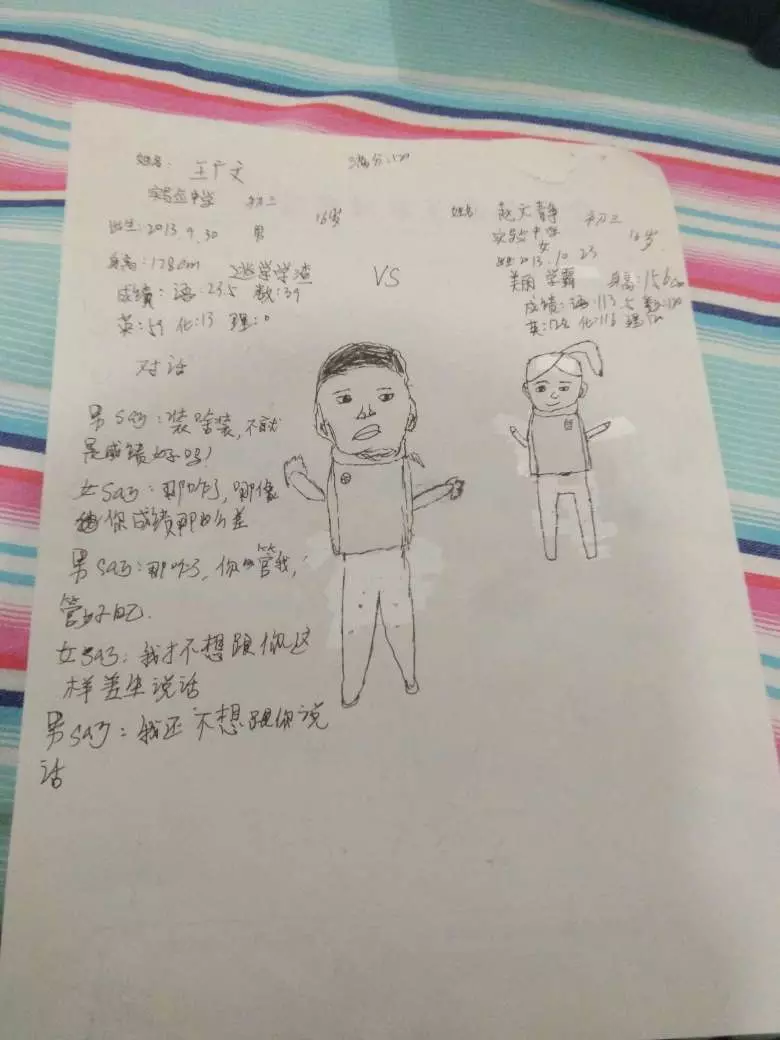 满分:120
姓名: 王广文
实验中学 初三
出生:2013.9.30 男 16岁
身高:128cm 逃学学渣
成绩:语:23.5 数:39
英:59 化:13 理:0
VS
姓名 赵文静 初三
实验中学 女 16岁
出生 2013.10.23
美丽 学霸 身高:156cm
成绩:语:113.5 数:120
英:120 化:116 理:120
对话
男say:装啥装,不就
是成绩好吗!
女say:那咋了,哪像
你成绩那么差
男say:那咋了,你管我,
管好自己.
女say:我才不想跟你这
样差生说话
男say:我还不想跟你说
话